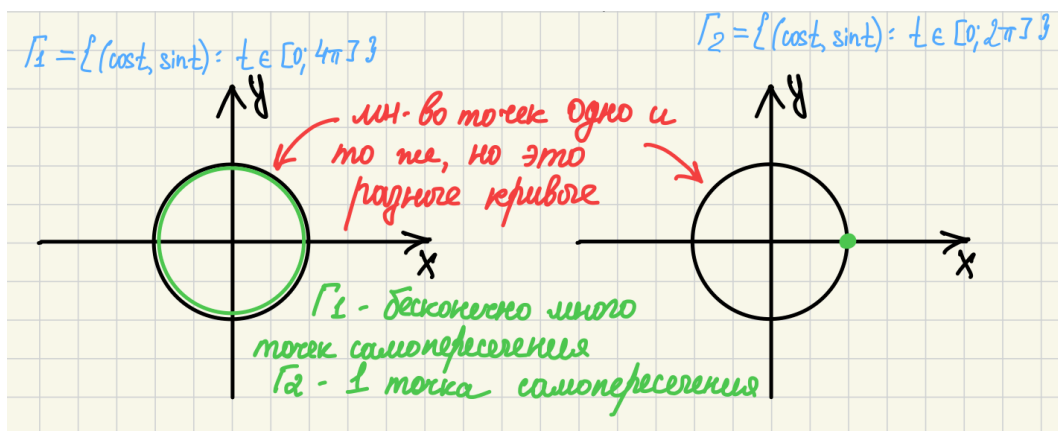 Γ1 = {(cost, sint): t ∈ [0; 4π]}
Γ2 = {(cost, sint): t ∈ [0; 2π]}
y
y
мн-во точек одно и
то же, но это
разные кривые
x
x
Γ1 - бесконечно много
точек самопересечения
Γ2 - 1 точка самопересечения